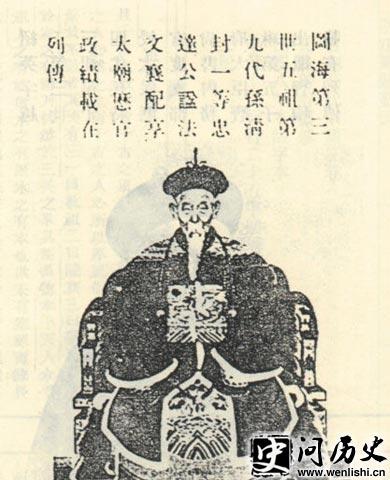 圖海第三
世五祖第
九代孫清
封一等忠
達公諡法
文襄配享
太廟歷官
政績載在
列傳
史问历史
www.wenlishi.cn